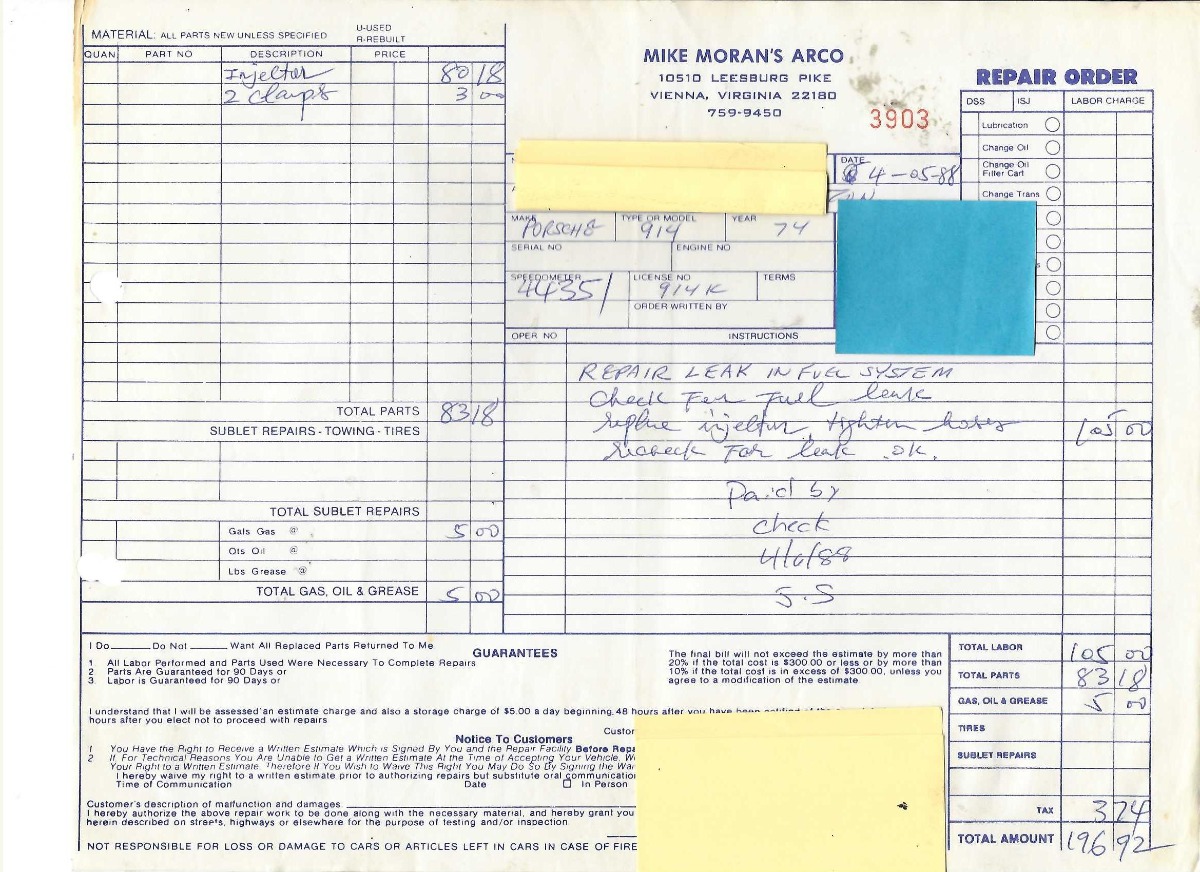 MATERIAL: ALL PARTS NEW UNLESS SPECIFIED
U-USED
R-REBUILT
QUAN PART NO DESCRIPTION PRICE
Injector 80 18
2 Clamps 3 00
TOTAL PARTS 83 18
SUBLET REPAIRS - TOWING - TIRES
TOTAL SUBLET REPAIRS
Gals Gas @ 5 00
Qts Oil @
Lbs Grease @
TOTAL GAS, OIL & GREASE 5 00
MIKE MORAN'S ARCO
10510 LEESBURG PIKE
VIENNA, VIRGINIA 22180
759-9450
3903
REPAIR ORDER
DSS ISJ LABOR CHARGE
Lubrication
Change Oil
Change Oil
Filter Cart
Change Trans
DATE
4-05-88
MAKE TYPE OR MODEL YEAR
PORSCHE 914 74
SERIAL NO ENGINE NO
SPEEDOMETER LICENSE NO TERMS
44351 914K
ORDER WRITTEN BY
OPER NO INSTRUCTIONS
REPAIR LEAK IN FUEL SYSTEM
Check For Fuel leak
replace injector, tighten hoses 105 00
recheck For leak OK.
Paid by
check
4/6/88
J.S
I Do Do Not Want All Replaced Parts Returned To Me
GUARANTEES
1 All Labor Performed and Parts Used Were Necessary To Complete Repairs
2 Parts Are Guaranteed for 90 Days or
3 Labor is Guaranteed for 90 Days or
The final bill will not exceed the estimate by more than
20% if the total cost is $300.00 or less or by more than
10% if the total cost is in excess of $300.00, unless you
agree to a modification of the estimate.
I understand that I will be assessed an estimate charge and also a storage charge of $5.00 a day beginning 48 hours after you have been notified of the
hours after you elect not to proceed with repairs
Notice To Customers
1 You Have the Right to Receive a Written Estimate Which is Signed By You and the Repair Facility Before
2 If For Technical Reasons You Are Unable to Get a Written Estimate At the Time of Accepting Your Vehicle,
Your Right to a Written Estimate. Therefore If You Wish to Waive This Right You May Do So By Signing the
I hereby waive my right to a written estimate prior to authorizing repairs but substitute oral
Time of Communication Date In Person
Customer's description of malfunction and damages
I hereby authorize the above repair work to be done along with the necessary material, and hereby grant you
herein described on streets, highways or elsewhere for the purpose of testing and/or inspection.
NOT RESPONSIBLE FOR LOSS OR DAMAGE TO CARS OR ARTICLES LEFT IN CARS IN CASE OF FIRE
TOTAL LABOR 105 00
TOTAL PARTS 83 18
GAS, OIL & GREASE 5 00
TIRES
SUBLET REPAIRS
TAX 3 74
TOTAL AMOUNT 196 92